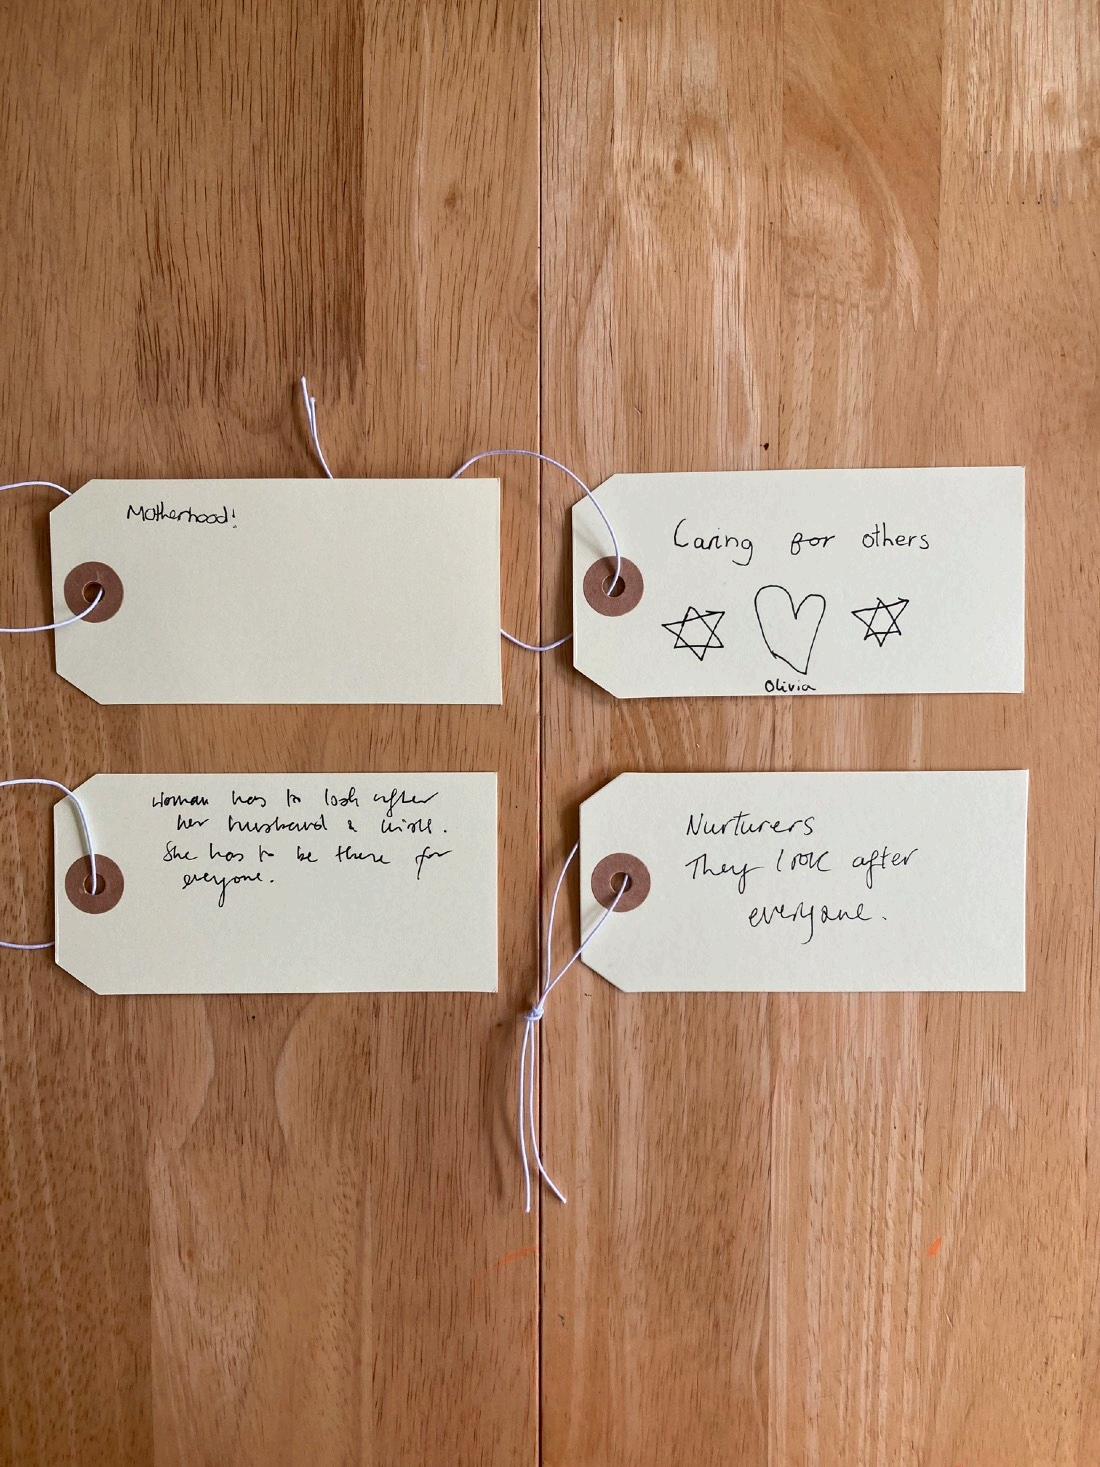 Motherhood!
Caring for others
Olivia
Woman has to look after
her husband & kids.
She has to be there for
everyone.
Nurturers
They look after
everyone.